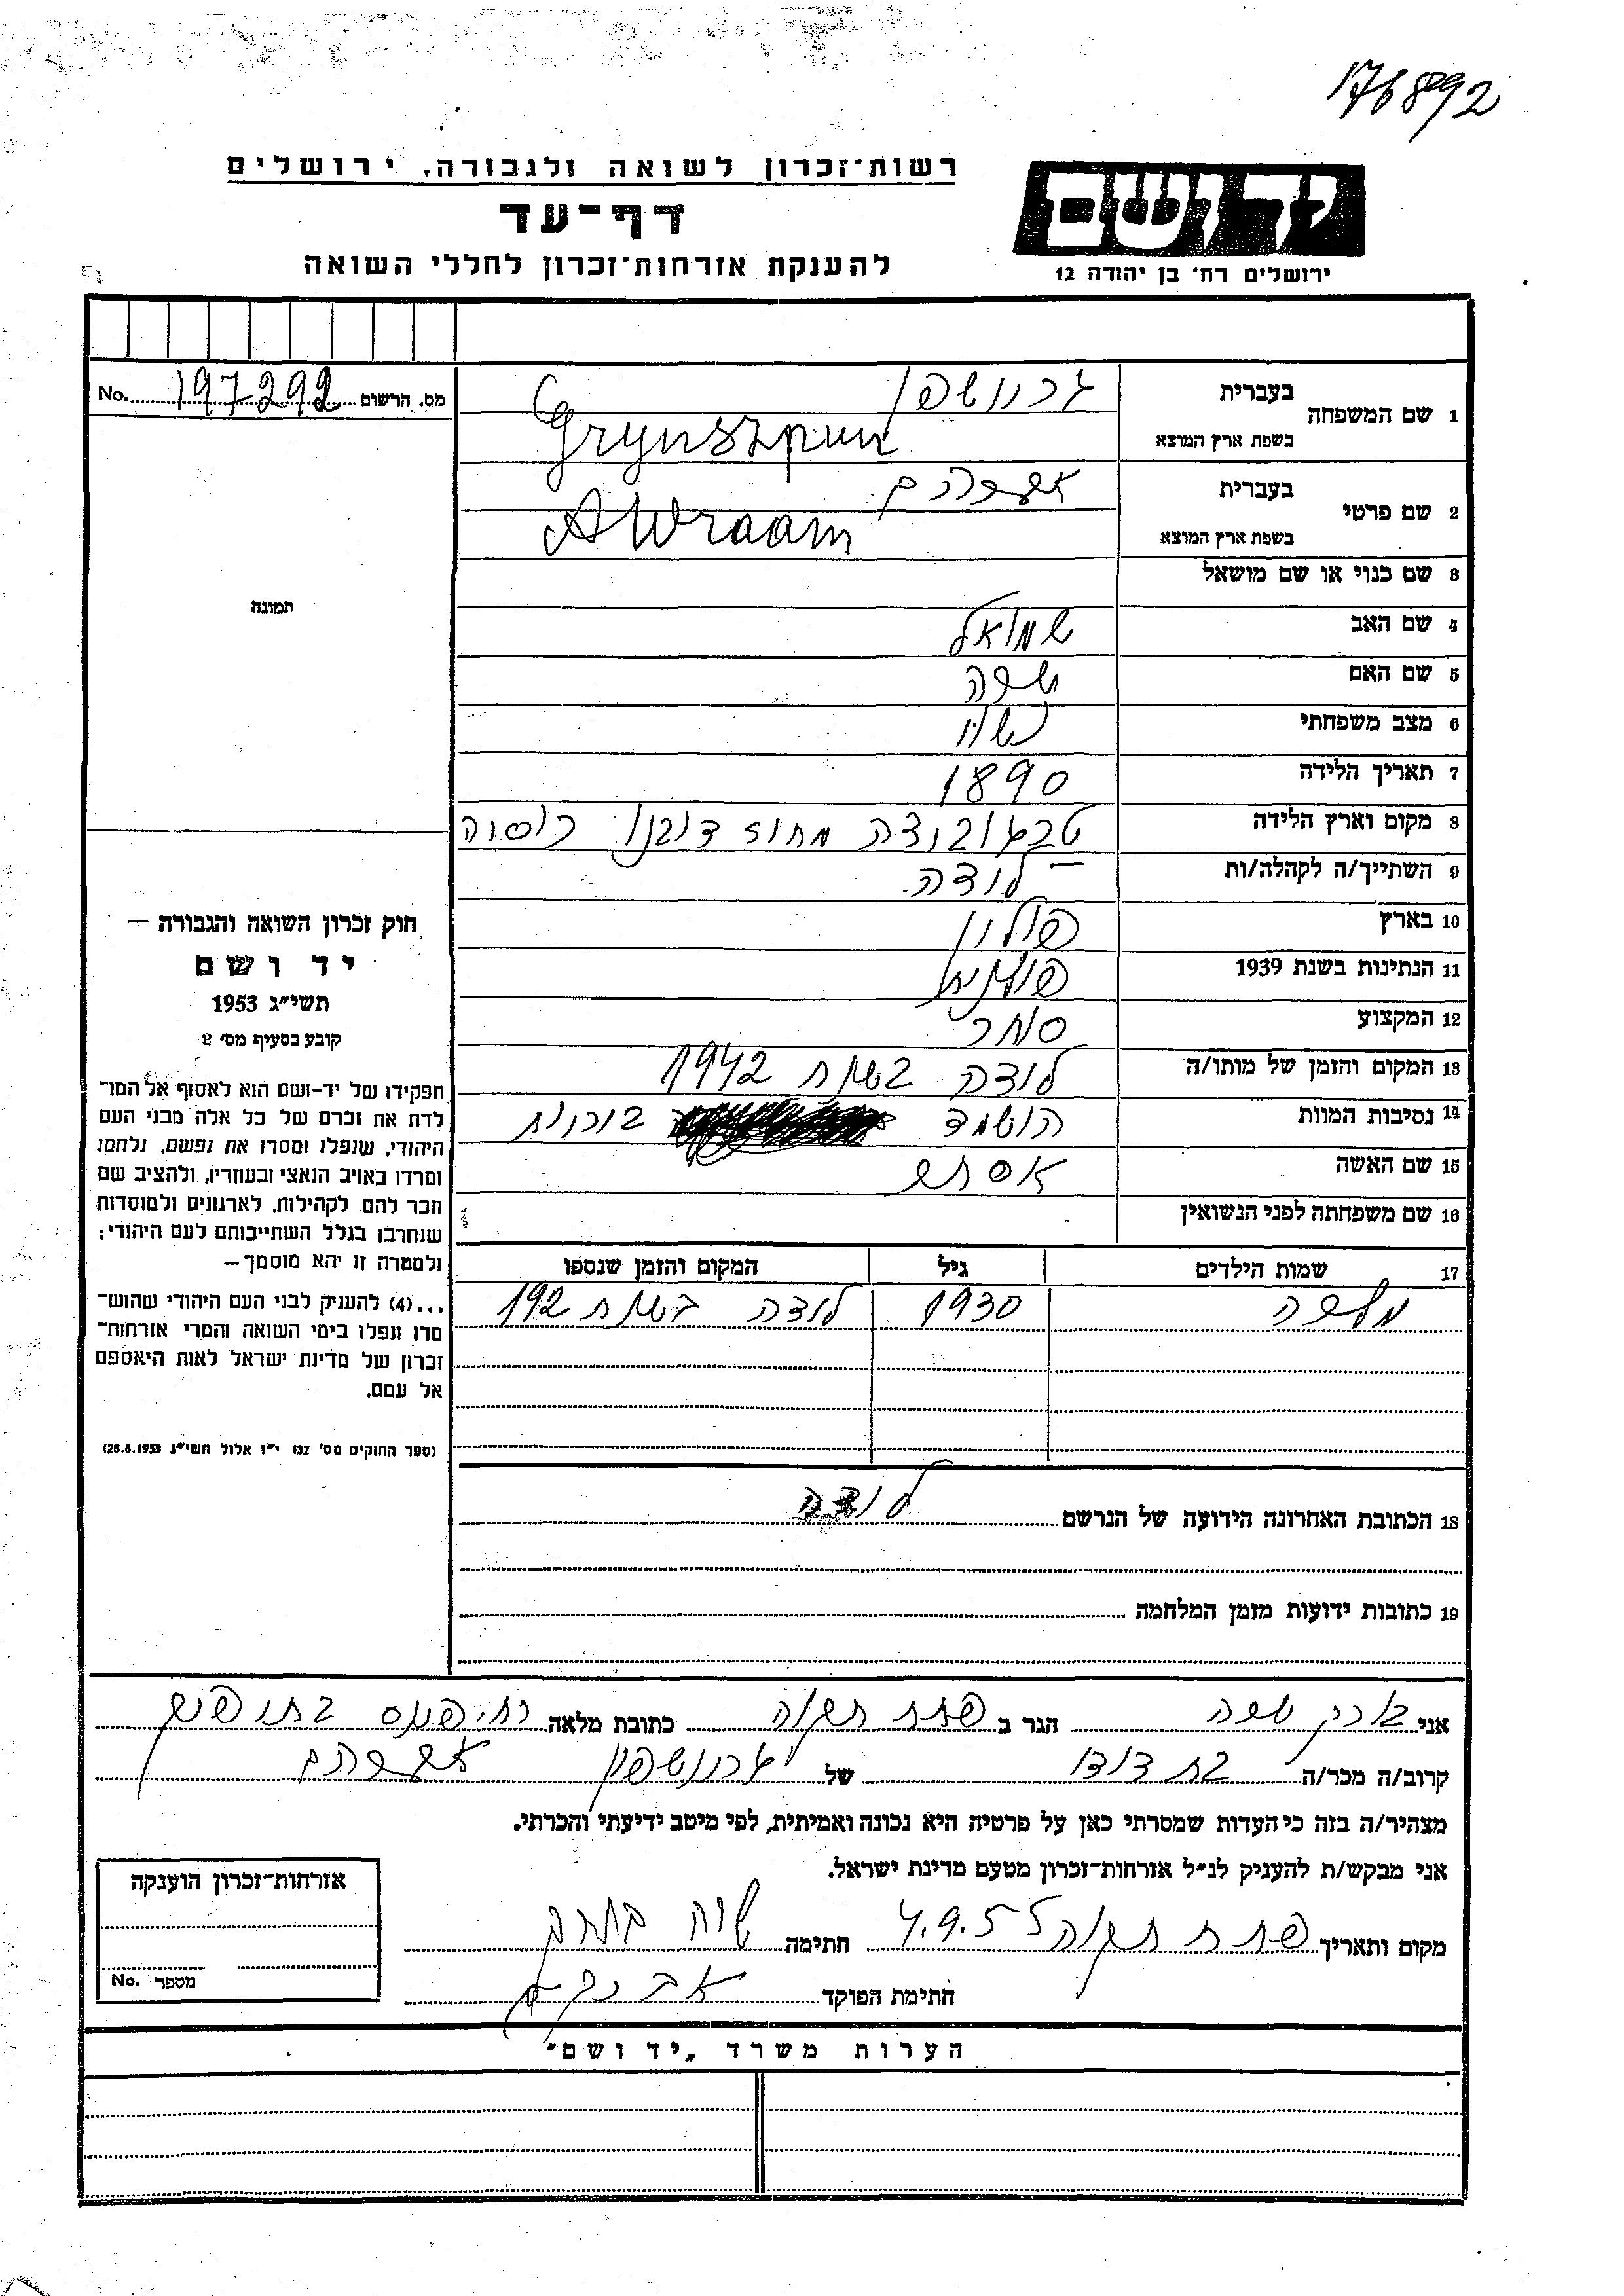 176892
רשות־זכרון לשואה ולגבורה, ירושלים
ידושם
דף־עד
להענקת אזרחות־זכרון לחללי השואה
ירושלים רח' בן יהודה 12
מס. הרשום 197292 No.
1 שם המשפחה
בעברית גרינשפן
בשפת ארץ המוצא Grynszpun
2 שם פרטי
בעברית אברהם
בשפת ארץ המוצא AWraam
3 שם כנוי או שם מושאל
תמונה
4 שם האב שמואל
5 שם האם שרה
6 מצב משפחתי נשוי
7 תאריך הלידה 1890
8 מקום וארץ הלידה מחוז רוסיה
9 השתייך/ה לקהלה/ות לודז'ה
10 בארץ פולין
11 הנתינות בשנת 1939 פולנית
12 המקצוע סוחר
13 המקום והזמן של מותו/ה לודז'ה בשנת 1942
14 נסיבות המוות הושמד
15 שם האשה אסתר
16 שם משפחתה לפני הנשואין
17 שמות הילדים גיל המקום והזמן שנספו
1930 לודז'ה בשנת 192
חוק זכרון השואה והגבורה —
יד ושם
תשי״ג 1953
קובע בסעיף מס' 2
תפקידו של יד-ושם הוא לאסוף אל המו־
לדת את זכרם של כל אלה מבני העם
היהודי, שנפלו ומסרו את נפשם, נלחמו
ומרדו באויב הנאצי ובעוזריו, ולהציב שם
וזכר להם לקהילות, לארגונים ולמוסדות
שנחרבו בגלל השתייכותם לעם היהודי;
ולמטרה זו יהא מוסמך —
...(4) להעניק לבני העם היהודי שהוש־
מדו ונפלו בימי השואה והמרי אזרחות־
זכרון של מדינת ישראל לאות היאספם
אל עמם.
(ספר החוקים מס' 132 י״ז אלול תשי״ג 28.8.1953)
18 הכתובת האחרונה הידועה של הנרשם לודז'ה
19 כתובות ידועות מזמן המלחמה
אני שרה הגר ב פתח תקוה כתובת מלאה
קרוב/ה מכר/ה בת דודו של גרינשפן אברהם
מצהיר/ה בזה כי העדות שמסרתי כאן על פרטיה היא נכונה ואמיתית, לפי מיטב ידיעתי והכרתי.
אני מבקש/ת להעניק לנ״ל אזרחות־זכרון מטעם מדינת ישראל.
מקום ותאריך פתח תקוה 4.9.55 חתימה
חתימת הפוקד
אזרחות־זכרון הוענקה
מספר No.
הערות משרד „יד ושם״